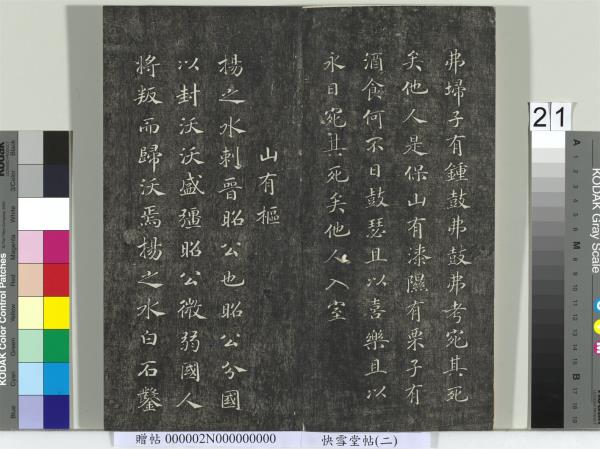 弗埽子有鍾鼓弗鼓弗考宛其死
矣他人是保山有漆隰有栗子有
酒食何不日鼓瑟且以喜樂且以
永日宛其死矣他人入室
山有樞
揚之水刺晉昭公也昭公分國
以封沃沃盛彊昭公微弱國人
將叛而歸沃焉揚之水白石鑿
21
贈帖 000002N000000000
快雪堂帖(二)
KODAK Color Control Patches
Blue
Cyan
Green
Yellow
Red
Magenta
White
3/Color
Black
KODAK Gray Scale
A 1 2 3 4 5 6 M 8 9 10 11 12 13 14 15 B 17 18 19